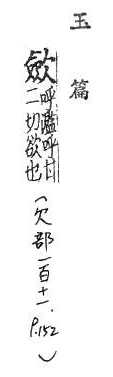 玉篇
歛
呼濫呼甘
二切欲也
(欠部一百十一. P.152)